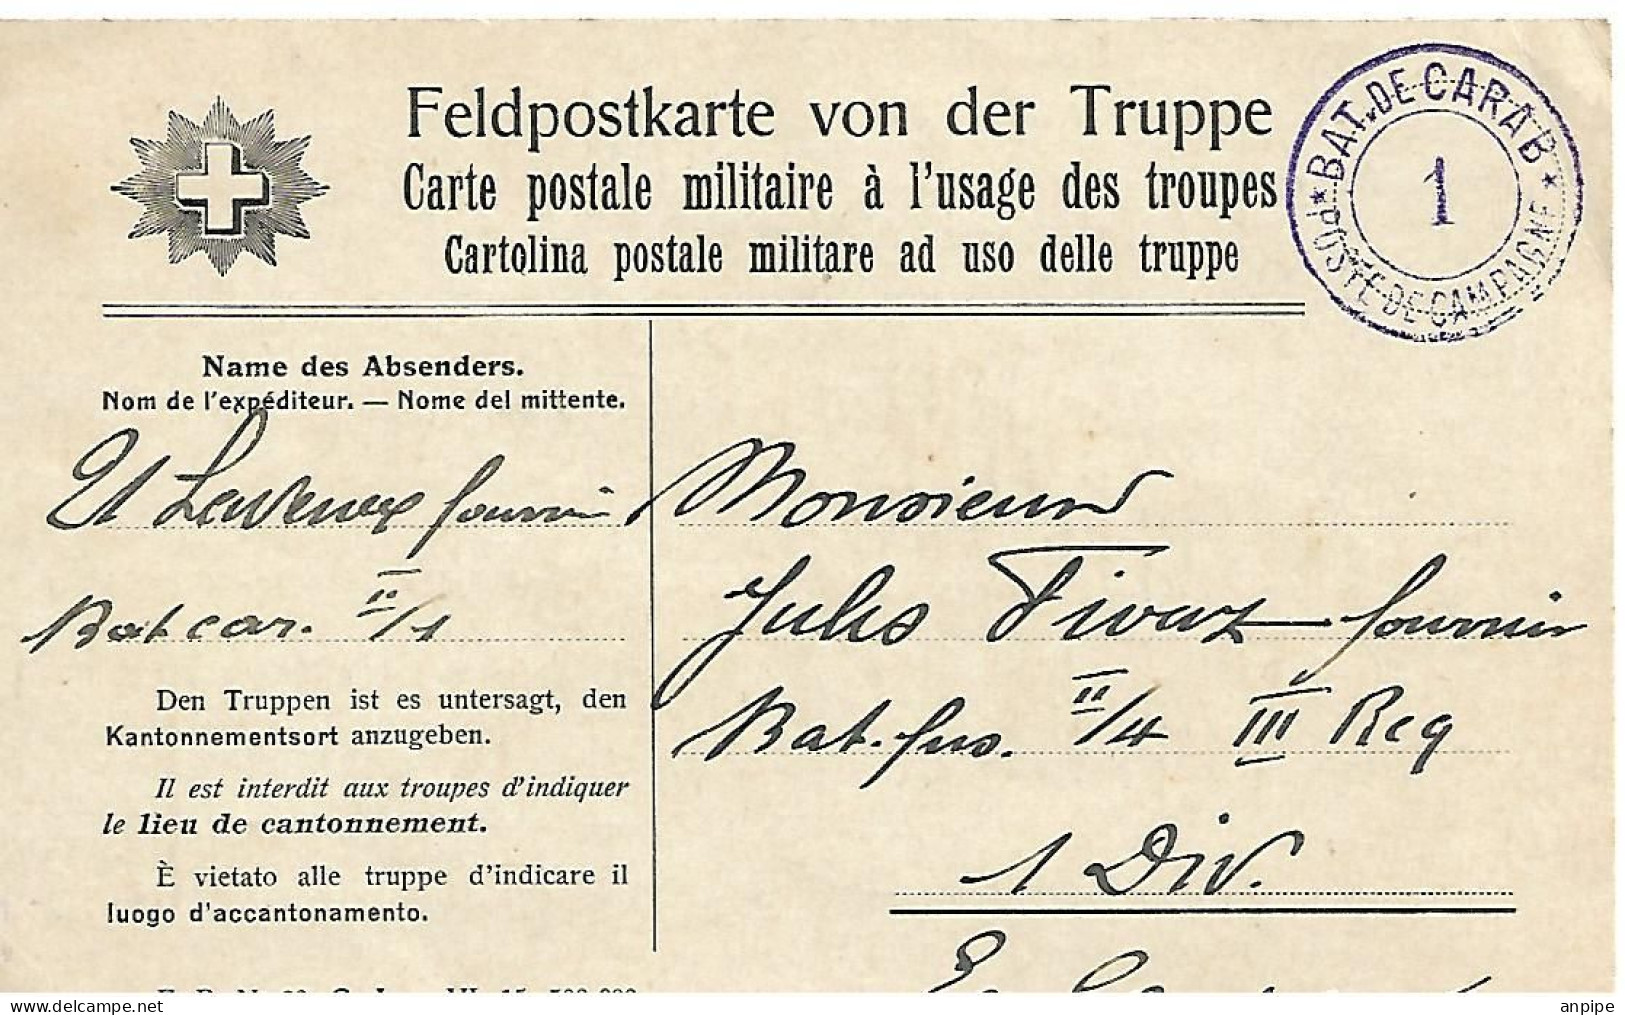 Feldpostkarte von der Truppe
Carte postale militaire à l'usage des troupes
Cartolina postale militare ad uso delle truppe
BAT. DE CARAB.
1
* POSTE DE CAMPAGNE *
Name des Absenders.
Nom de l'expéditeur. — Nome del mittente.
fourrier
Bat car. II/1
Monsieur
Jules fourrier
Bat. fus. II/4 III Reg
1 Div.
Den Truppen ist es untersagt, den
Kantonnementsort anzugeben.
Il est interdit aux troupes d'indiquer
le lieu de cantonnement.
È vietato alle truppe d'indicare il
luogo d'accantonamento.
anpipe